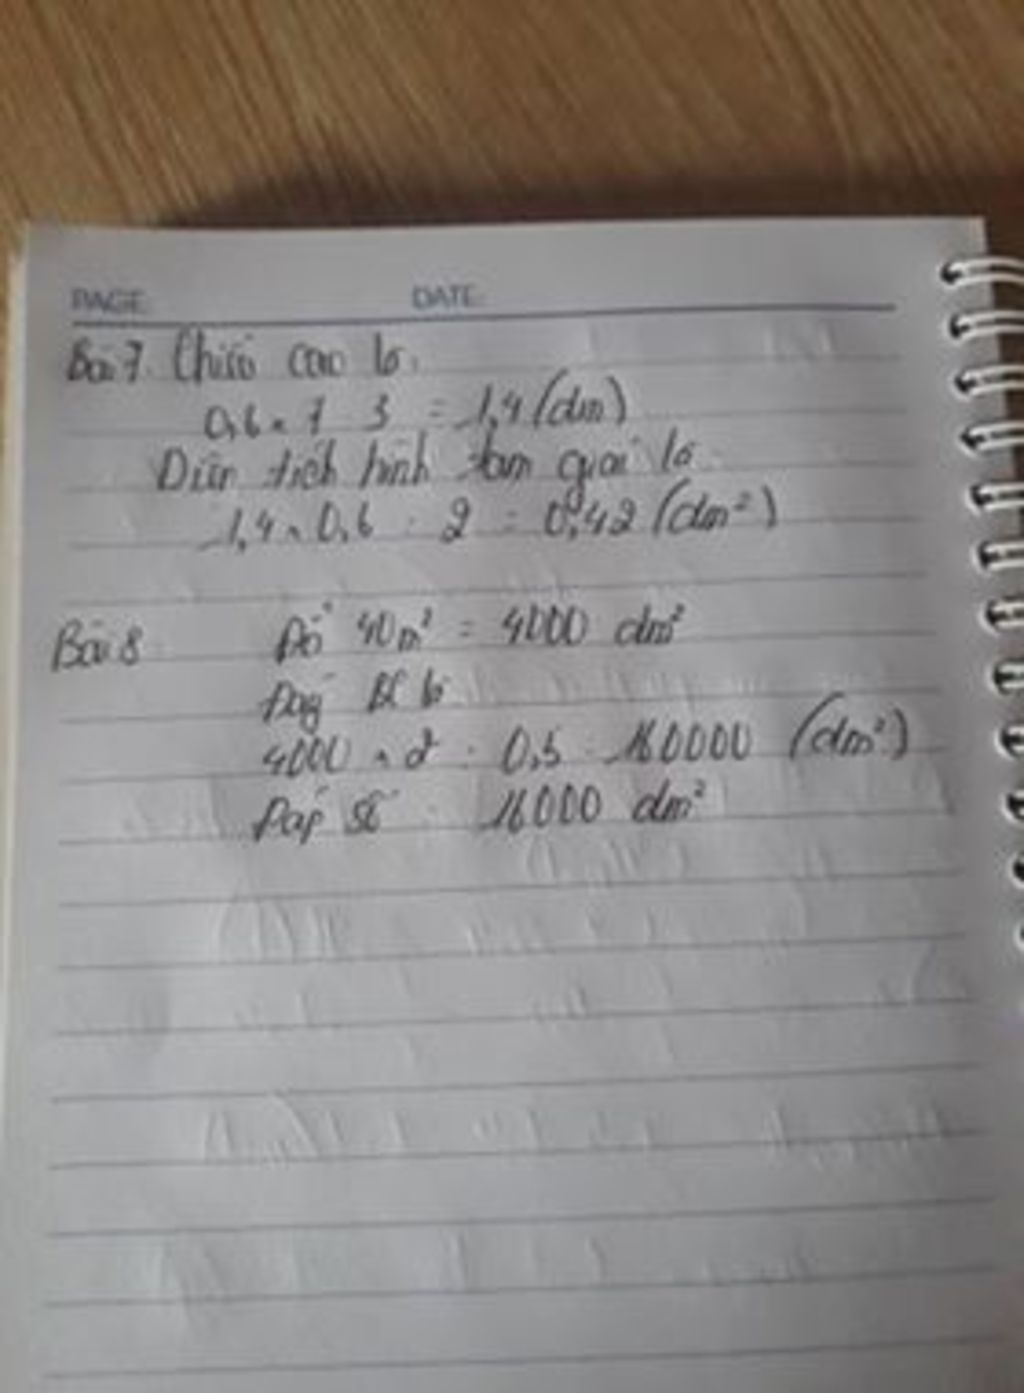 PAGE: DATE:
Bài 7. Chiều cao là:
0,6 x 7 : 3 = 1,4 (dm)
Diện tích hình tam giác là
1,4 x 0,6 : 2 = 0,42 (dm²)
Bài 8: Đổ 40m² = 4000 dm²
Đáy BC là
4000 x 2 : 0,5 = 160000 (dm²)
Đáp số : 16000 dm²